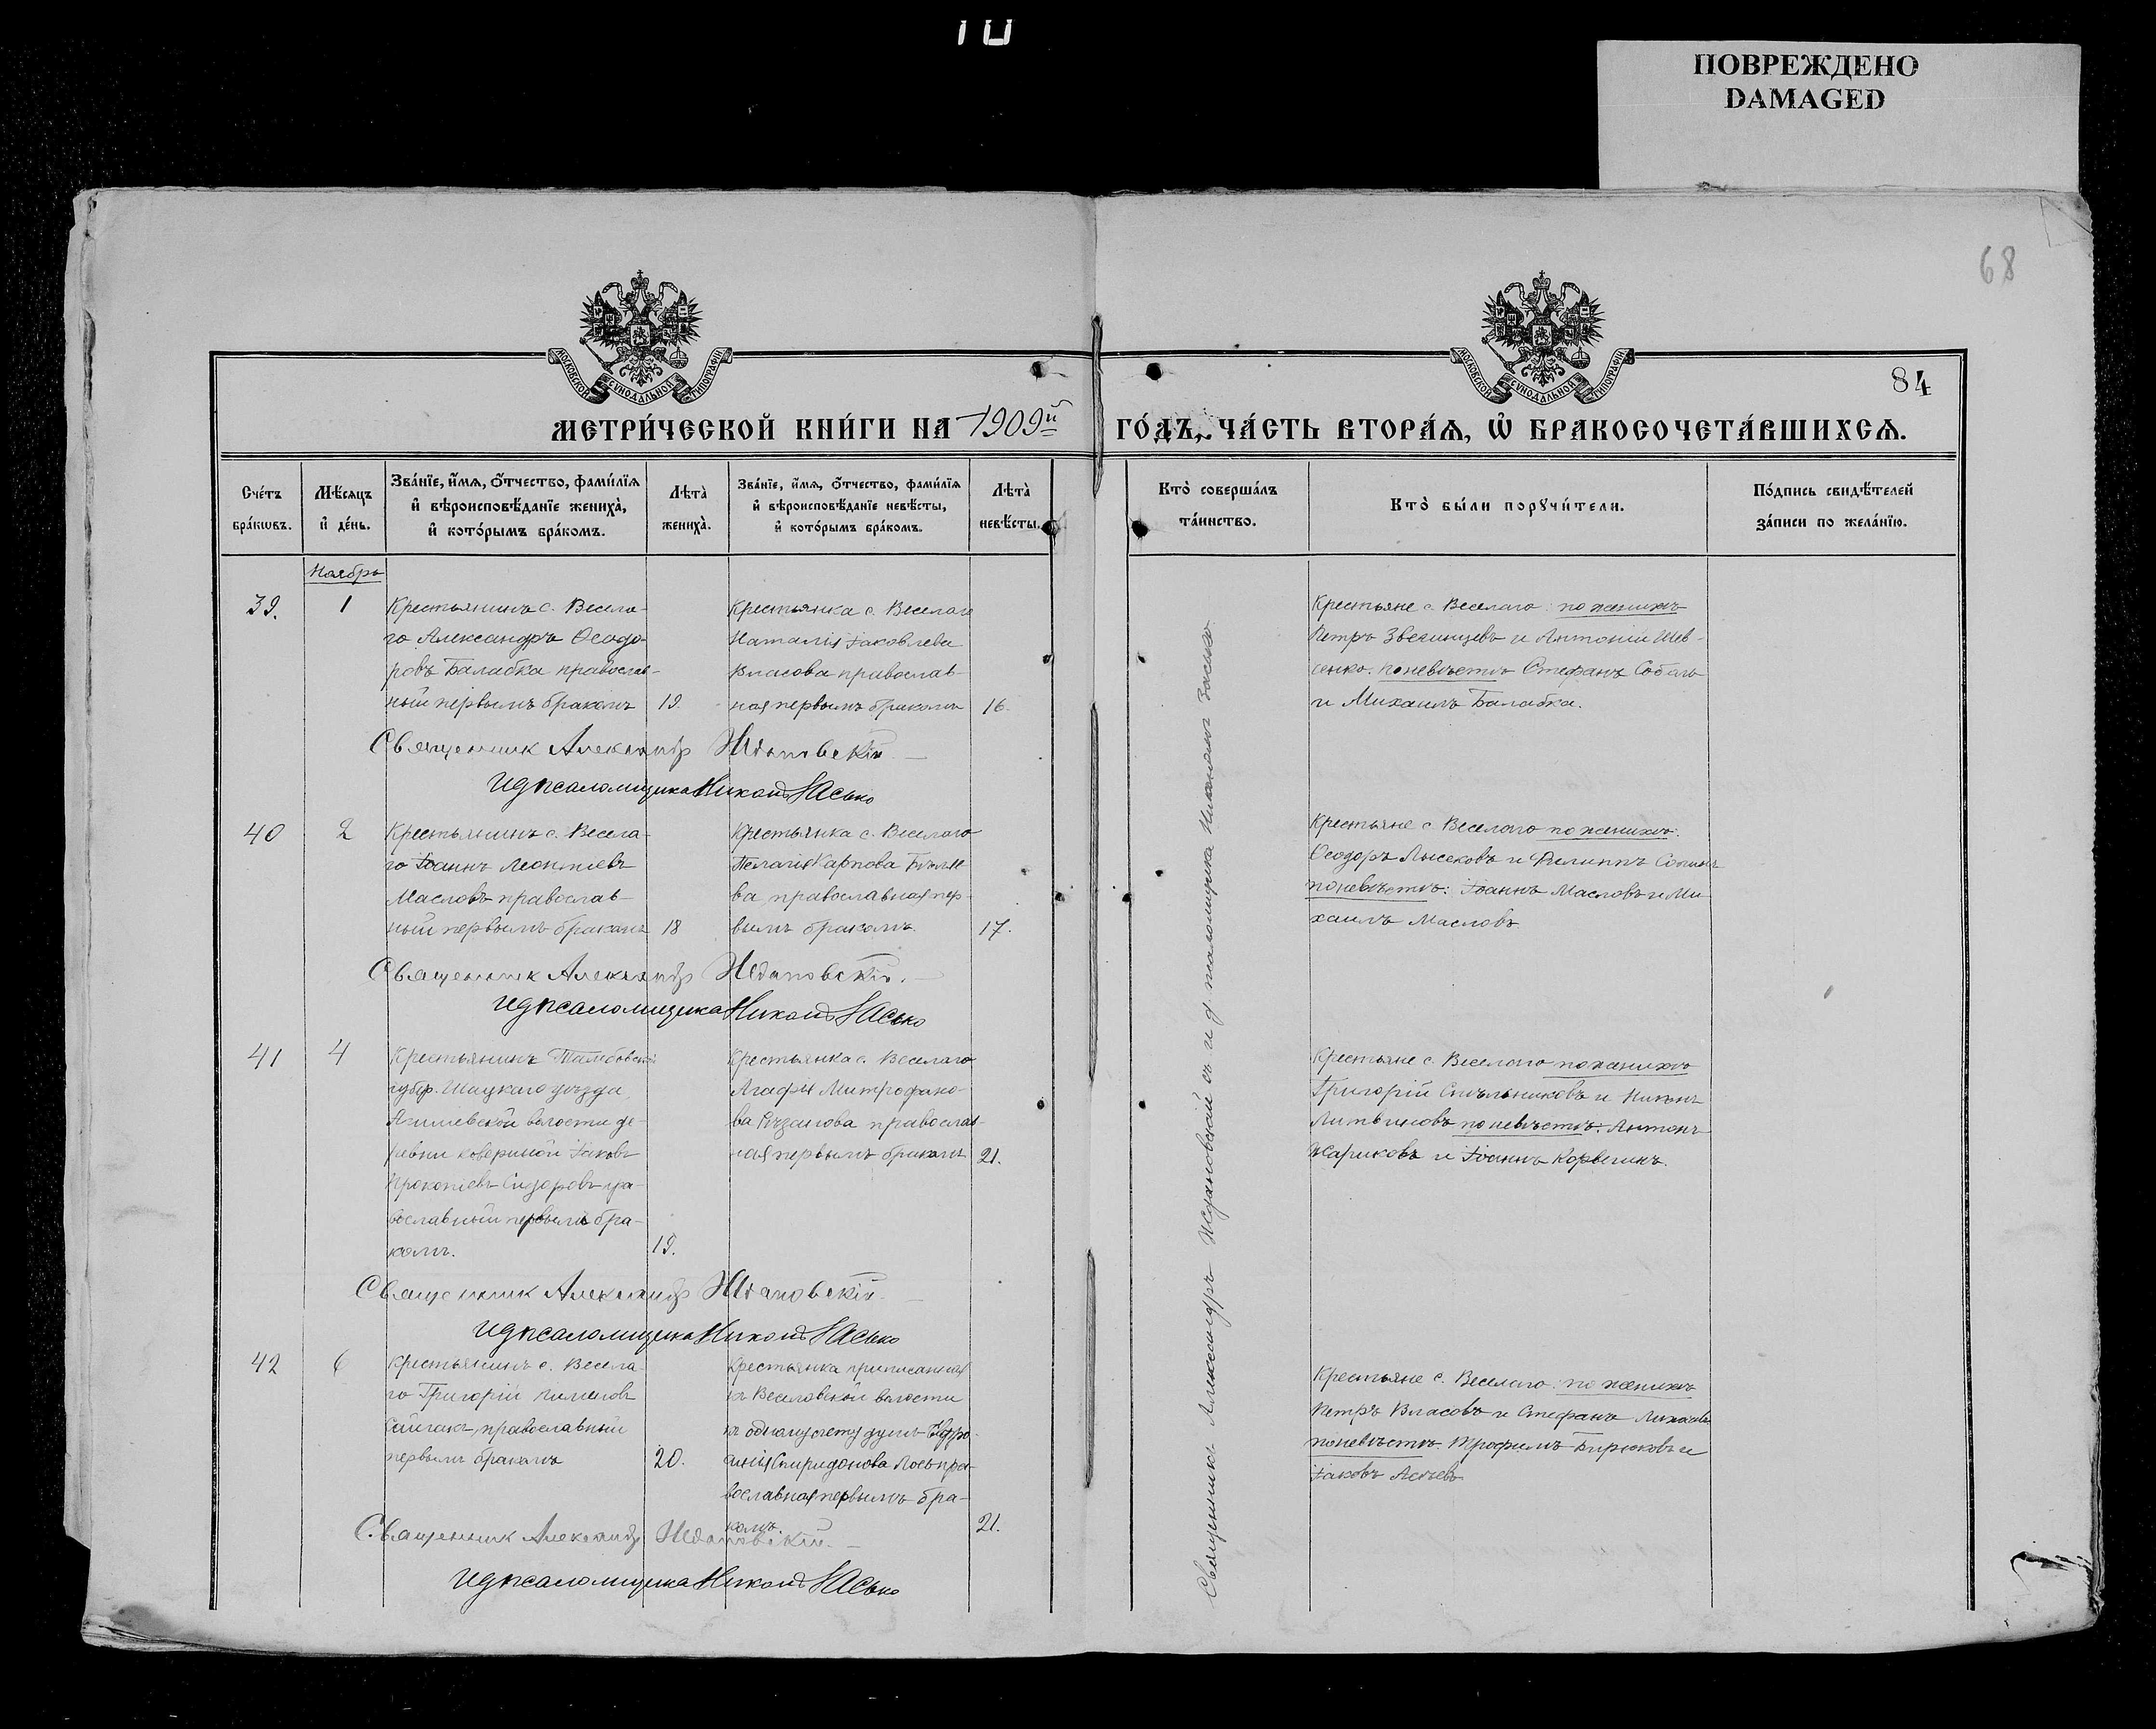 10
ПОВРЕЖДЕНО
DAMAGED
68
МОСКОВСКОЙ СѴНОДАЛЬНОЙ ТИПОГРАФІИ
МОСКОВСКОЙ СѴНОДАЛЬНОЙ ТИПОГРАФІИ
84
МЕТРИ́ЧЕСКОЙ КНИ́ГИ НА 1909й ГО́ДЪ, ЧА́СТЬ ВТОРА́Я, Ѡ҆ БРАКОСОЧЕТА́ВШИХСЯ.
Сче́тъ бра́кωвъ.
Мѣ́сяцъ и҆ де́нь.
Зва́нїе, и҆́мя, о҆́тчество, фами́лїя
и҆ вѣроисповѣ́данїе жениха̀,
и҆ кото́рымъ бра́комъ.
Лѣта̀ жениха̀.
Зва́нїе, и҆́мя, о҆́тчество, фами́лїя
и҆ вѣроисповѣ́данїе невѣ́сты,
и҆ кото́рымъ бра́комъ.
Лѣта̀ невѣ́сты.
Кто̀ соверша́лъ
та́инство.
Кто̀ бы́ли порꙋчи́тели.
По́дпись свидѣ́телей
за́писи по жела́нїю.
Ноябрь
39.
1
Крестьянинъ с. Весела-
го Александръ Ѳеодо-
ровъ Балабка православ-
ный первымъ бракомъ
19.
Крестьянка с. Веселаго
Наталія Іаковлева
Власова православ-
ная первымъ бракомъ
16.
Крестьяне с. Веселаго: по женихѣ
Петръ Звегинцевъ и Антоній Шев-
ченко. по невѣстѣ Стефанъ Соболь
и Михаилъ Балабка.
Священник Александр Ждановскій.
И д псаломщика Никонъ Засько
40
2
Крестьянинъ с. Весела-
го Іоаннъ Леонтіевъ
Масловъ православ-
ный первымъ бракомъ
18
Крестьянка с. Веселаго
Пелагія Карпова
ва православная пер-
вымъ бракомъ.
17.
Крестьяне с. Веселаго по женихѣ:
Ѳеодоръ Лысековъ и Филиппъ
по невѣстѣ: Іоаннъ Масловъ и Ми
хаилъ Масловъ
Священник Александр Ждановскій.
И д псаломщика Никонъ Засько
41
4
Крестьянинъ Тамбовской
губер. Шацкаго уѣзда,
волости де-
ревни Ковериной Іаковъ
Прокопіевъ Сидоровъ пра-
вославный первымъ бра-
комъ.
19.
Крестьянка с. Веселаго
Агафія Митрофано-
ва Рѣзанова православ-
ная первымъ бракомъ
21.
Крестьяне с. Веселаго по женихѣ
Григорій и Никонъ
Литвиновъ по невѣстѣ: Антонъ
Жариковъ и Іоаннъ
Священник Александр Ждановскій.
И д псаломщика Никонъ Засько
42
6
Крестьянинъ с. Весела-
го Григорій
православный
первымъ бракомъ
20.
Крестьянка приписанная
къ Веселовской волости
къ одному счету душъ
Спиридонова пра-
вославная первымъ бра-
комъ.
21.
Крестьяне с. Веселаго: по женихѣ
Петръ Власовъ и Стефанъ
по невѣстѣ. Трофимъ Бирюковъ и
Іаковъ
Священник Александр Ждановскій.
И д псаломщика Никонъ Засько
Священникъ Александръ Ждановскій съ и д псаломщика Никономъ Засько